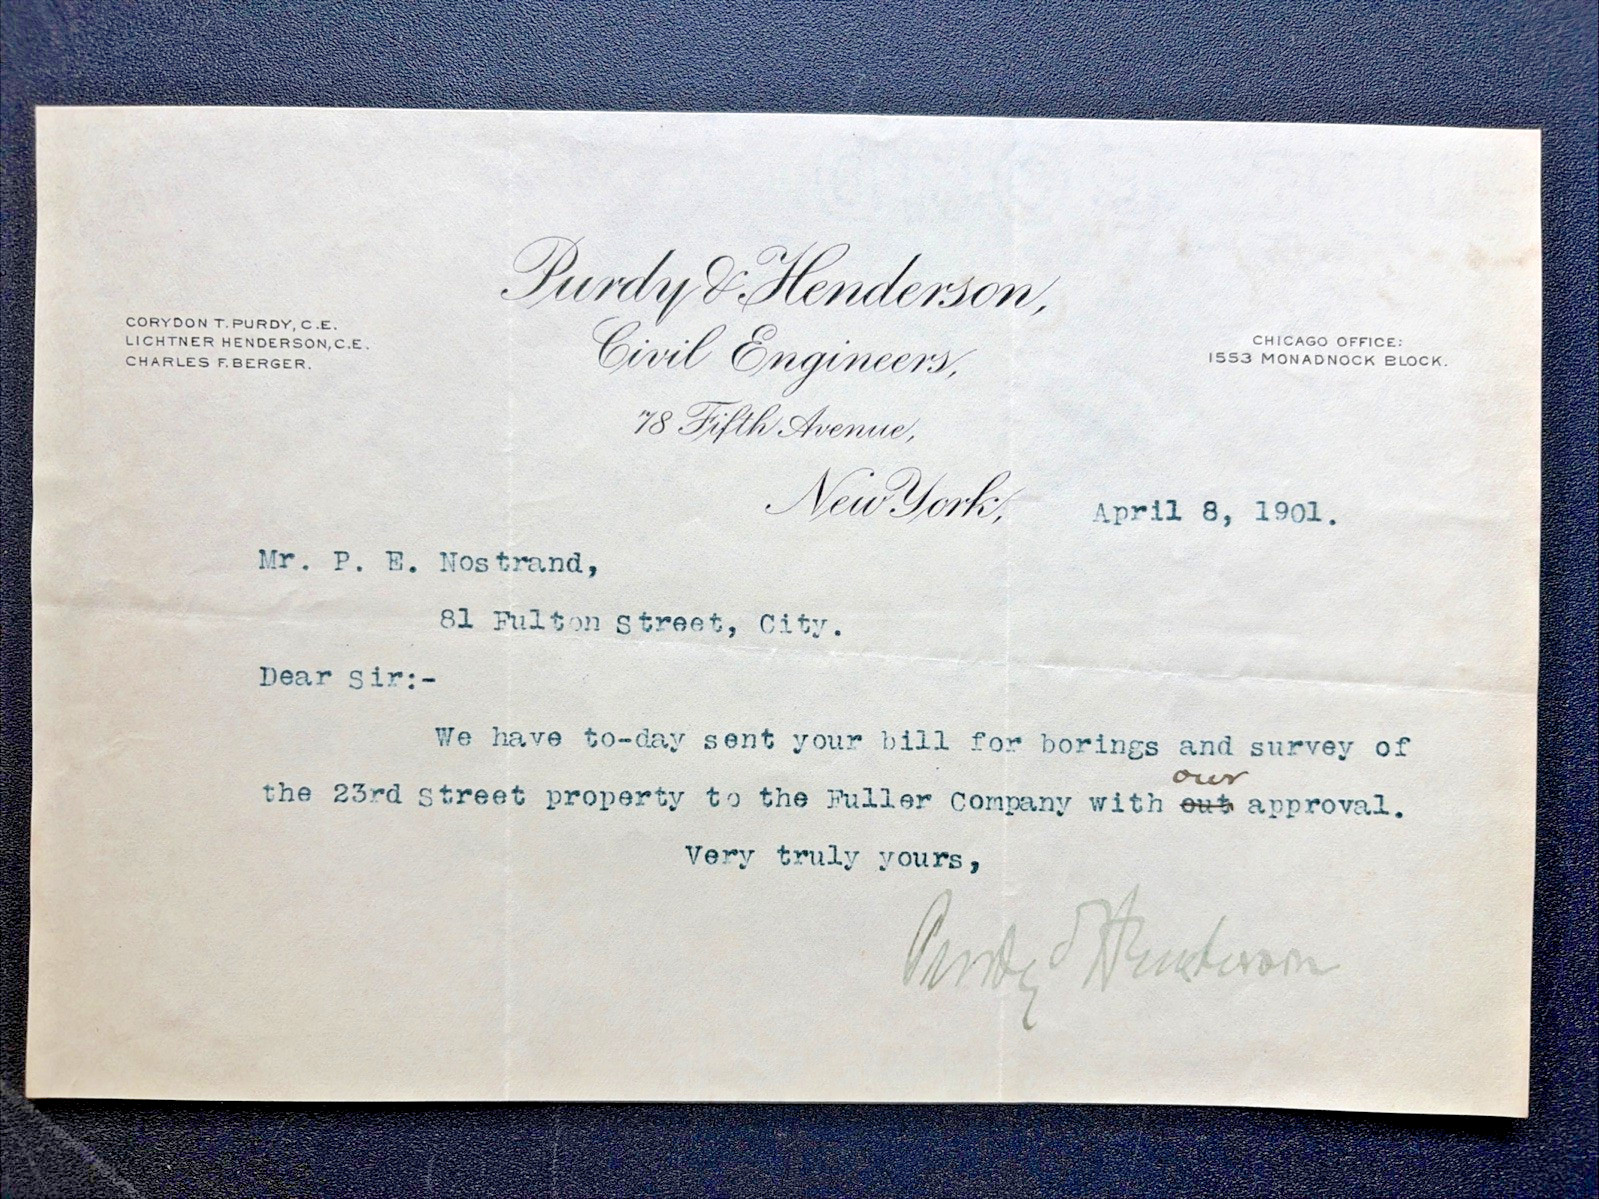 Purdy & Henderson,
CORYDON T. PURDY, C.E.
LICHTNER HENDERSON, C.E.
CHARLES F. BERGER.
Civil Engineers,
CHICAGO OFFICE:
1553 MONADNOCK BLOCK.
78 Fifth Avenue,
New York, April 8, 1901.
Mr. P. E. Nostrand,
81 Fulton Street, City.
Dear Sir:-
We have to-day sent your bill for borings and survey of
our
the 23rd Street property to the Fuller Company with out approval.
Very truly yours,
Purdy & Henderson